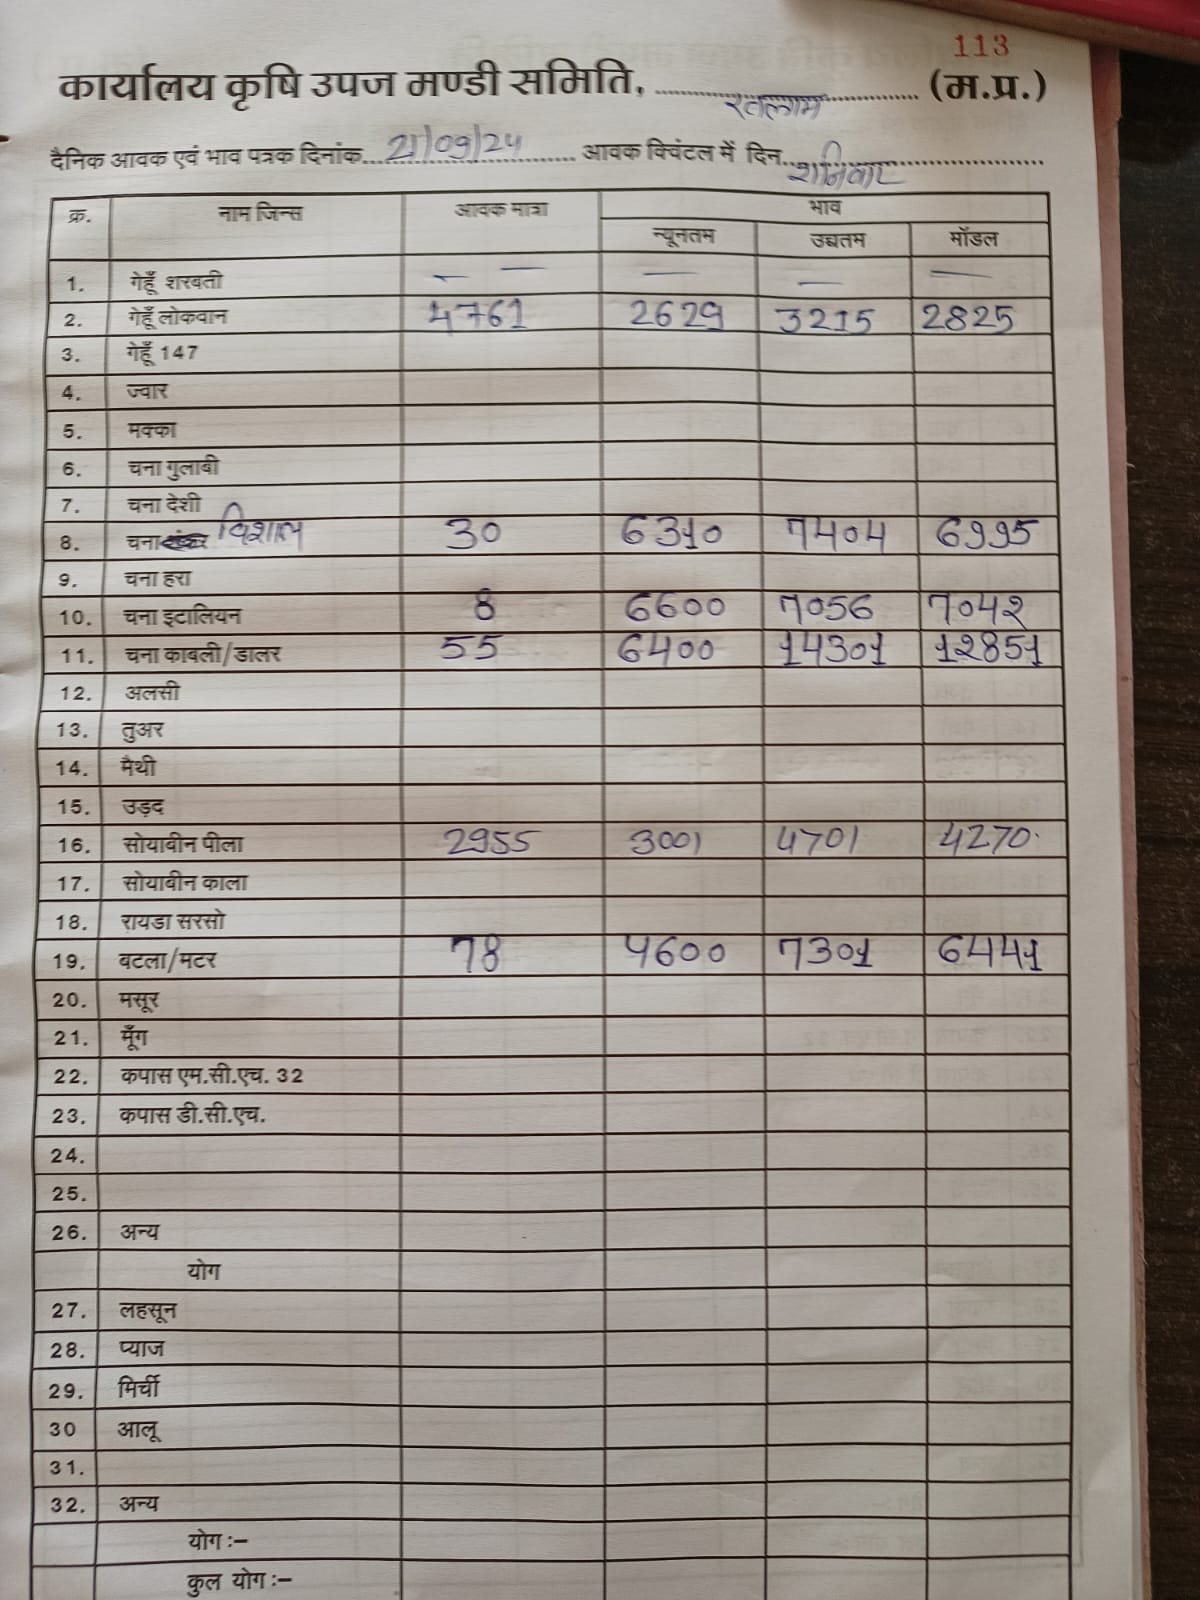 113
कार्यालय कृषि उपज मण्डी समिति, रतलाम (म.प्र.)
दैनिक आवक एवं भाव पत्रक दिनांक 21/09/24 आवक क्विंटल में दिन शनिवार
क्र. नाम जिन्स आवक मात्रा भाव
न्यूनतम उच्चतम मॉडल
1. गेहूँ शरबती — — — — —
2. गेहूँ लोकवान 4761 2629 3215 2825
3. गेहूँ 147
4. ज्वार
5. मक्का
6. चना गुलाबी
7. चना देशी
8. चना विशाल 30 6310 7404 6995
9. चना हरा
10. चना इटालियन 8 6600 7056 7042
11. चना काबली/डालर 55 6400 14301 12851
12. अलसी
13. तुअर
14. मैथी
15. उड़द
16. सोयाबीन पीला 2955 3001 4701 4270
17. सोयाबीन काला
18. रायडा सरसो
19. बटला/मटर 78 4600 7301 6441
20. मसूर
21. मूँग
22. कपास एम.सी.एच. 32
23. कपास डी.सी.एच.
24.
25.
26. अन्य
योग
27. लहसून
28. प्याज
29. मिर्ची
30 आलू
31.
32. अन्य
योग :–
कुल योग :–